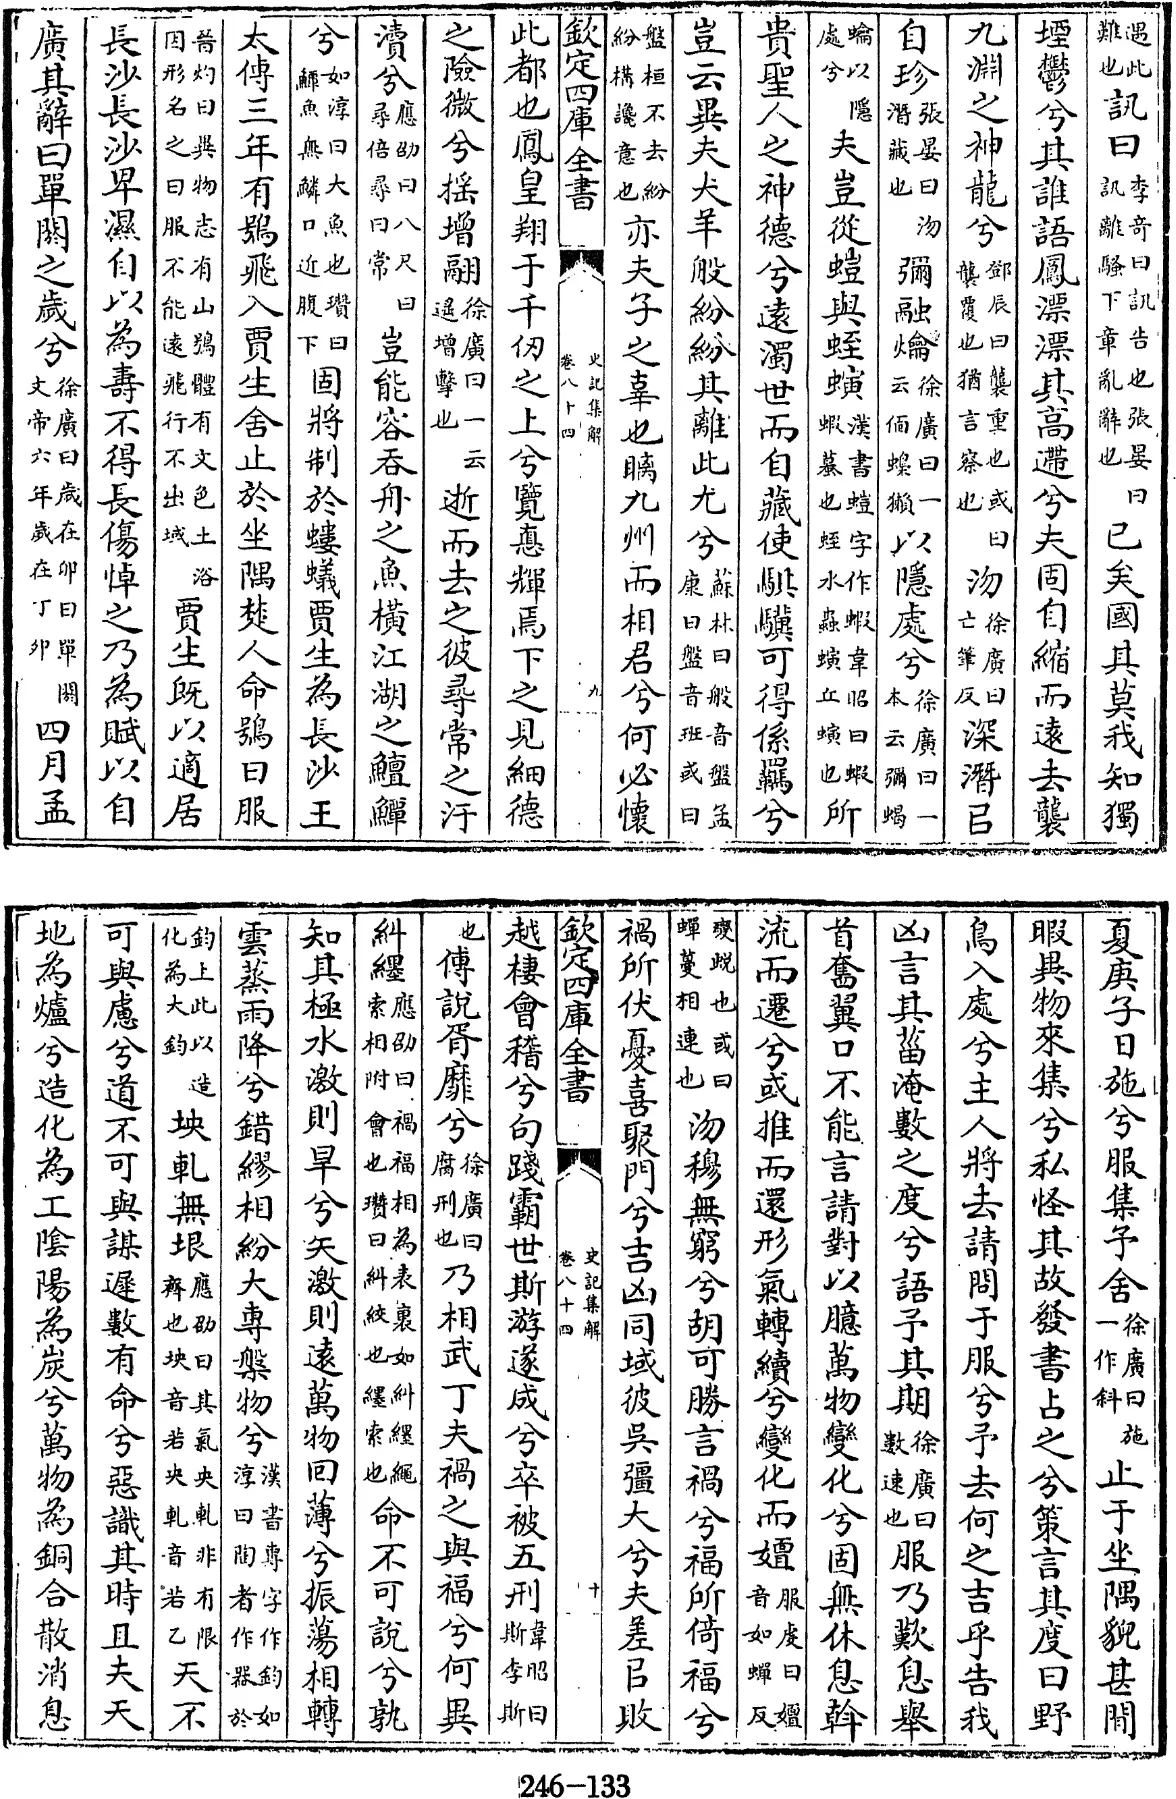 遇此難也訊曰李奇曰訊告也張晏曰訊離騷下章亂辭也已矣國其莫我知獨
堙鬱兮其誰語鳳漂漂其高遰兮夫固自縮而遠去襲
九淵之神龍兮鄧展曰襲重也或曰襲覆也猶言察也沕徐廣曰亡筆反深潛㠯
自珍張晏曰沕潛藏也彌融爚徐廣曰一云偭蟂獺以隱處兮徐廣曰一本云彌蝎
蜦以隱處兮夫豈從螘與蛭螾漢書螘字作蝦韋昭曰蝦蝦蟇也蛭水蟲螾丘螾也所
貴聖人之神德兮遠濁世而自藏使騏驥可得係羈兮
豈云異夫犬羊般紛紛其離此尤兮蘇林曰般音盤孟康曰盤音班或曰
盤桓不去紛紛構讒意也亦夫子之辜也瞝九州而相君兮何必懷
欽定四庫全書 史記集解 卷八十四 九
此都也鳳皇翔于千仞之上兮覽悳輝焉下之見細德
之險微兮搖增翮徐廣曰一云遥增擊也逝而去之彼尋常之汙
瀆兮應劭曰八尺曰尋倍尋曰常豈能容吞舟之魚橫江湖之鱣鱓
兮如淳曰大魚也瓚曰鱓魚無鱗口近腹下固將制於螻蟻賈生為長沙王
太傅三年有鴞飛入賈生舍止於坐隅楚人命鴞曰服
晉灼曰異物志有山鴞體有文色土俗因形名之曰服不能遠飛行不出域賈生既以適居
長沙長沙卑濕自以為壽不得長傷悼之乃為賦以自
廣其辭曰單閼之歲兮徐廣曰歲在卯曰單閼文帝六年歲在丁卯四月孟
夏庚子日施兮服集予舍徐廣曰施一作斜止于坐隅貌甚閒
暇異物來集兮私怪其故發書占之兮策言其度曰野
鳥入處兮主人將去請問于服兮予去何之吉乎告我
凶言其菑淹數之度兮語予其期徐廣曰數速也服乃歎息舉
首奮翼口不能言請對以臆萬物變化兮固無休息斡
流而遷兮或推而還形氣轉續兮變化而嬗服虔曰嬗音如蟬反
變蛻也或曰蟬蔓相連也沕穆無窮兮胡可勝言禍兮福所倚福兮
禍所伏憂喜聚門兮吉凶同域彼吳彊大兮夫差㠯敗
欽定四庫全書 史記集解 卷八十四 十
越棲會稽兮句踐霸世斯游遂成兮卒被五刑韋昭曰斯李斯
也傅說胥靡兮徐廣曰腐刑也乃相武丁夫禍之與福兮何異
糾纆應劭曰禍福相為表裏如糾纆繩索相附會也瓚曰糾絞也纆索也命不可說兮孰
知其極水激則旱兮矢激則遠萬物回薄兮振蕩相轉
雲蒸雨降兮錯繆相紛大專槃物兮漢書專字作鈞如淳曰陶者作器於
鈞上此以造化為大鈞坱軋無垠應劭曰其氣坱軋非有限齊也坱音若央軋音若乙天不
可與慮兮道不可與謀遲數有命兮惡識其時且夫天
地為爐兮造化為工陰陽為炭兮萬物為銅合散消息
246-133